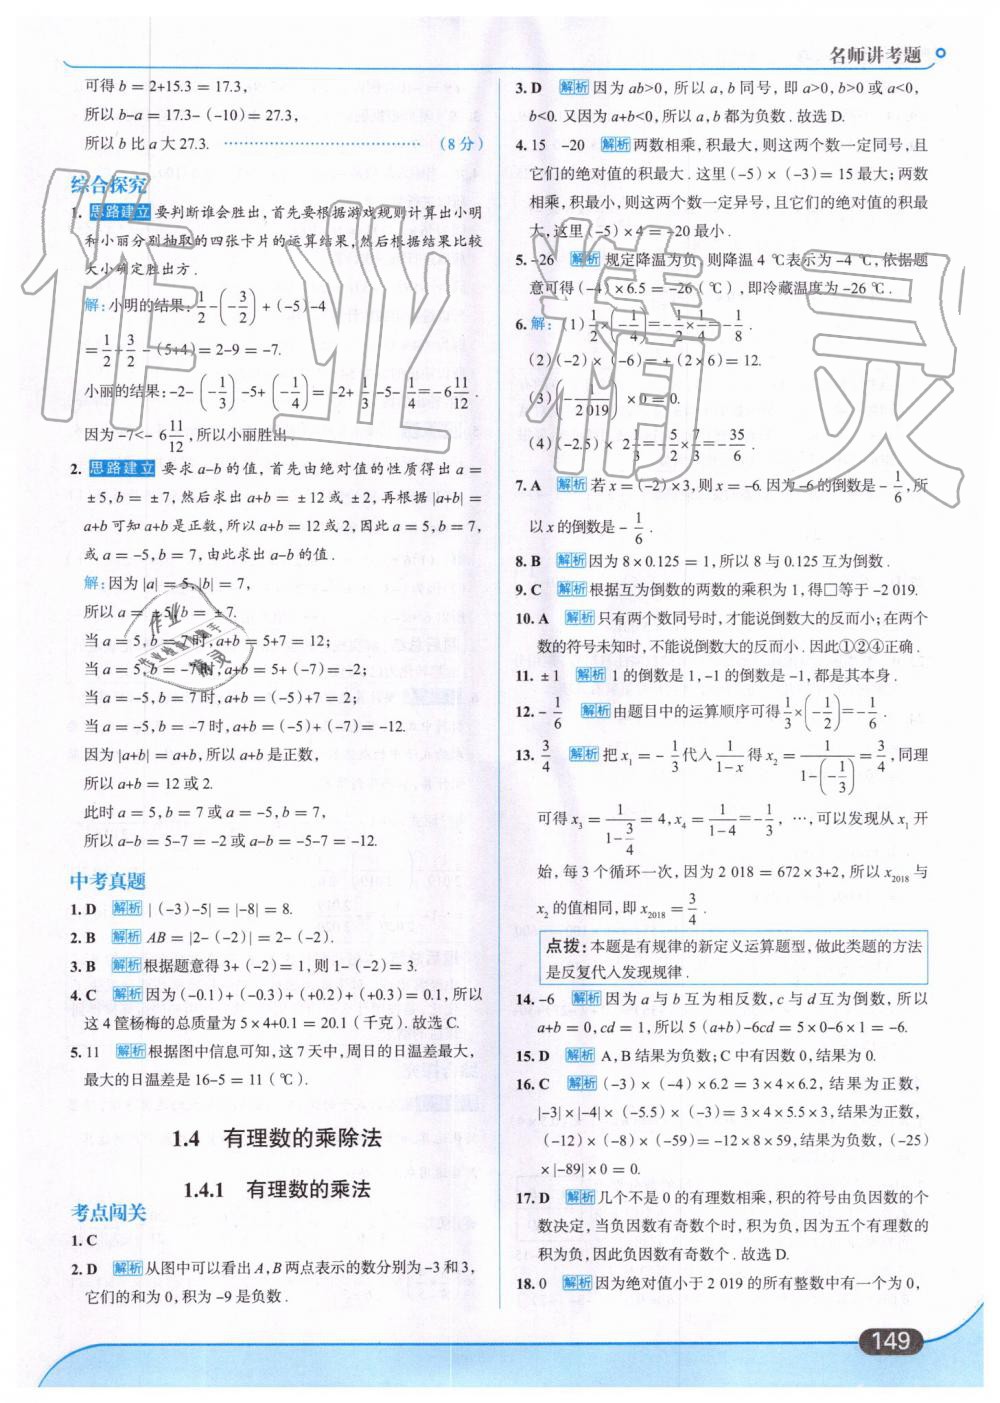 名师讲考题
可得 b = 2+15.3 = 17.3,
所以 b-a = 17.3-(-10) = 27.3,
所以 b 比 a 大 27.3. (8 分)
综合探究
1. 思路建立 要判断谁会胜出,首先要根据游戏规则计算出小明
和小丽分别抽取的四张卡片的运算结果,然后根据结果比较
大小确定胜出方.
解:小明的结果:1/2-(-3/2)+(-5)-4
=1/2+3/2-(5+4)=2-9=-7.
小丽的结果:-2-(-1/3)-5+(-1/4)=-2+1/3-5-1/4=-6 11/12.
因为-7<-6 11/12,所以小丽胜出.
2. 思路建立 要求 a-b 的值,首先由绝对值的性质得出 a =
±5,b = ±7,然后求出 a+b = ±12 或 ±2,再根据 |a+b| =
a+b 可知 a+b 是正数,所以 a+b = 12 或 2,因此 a = 5,b = 7,
或 a = -5,b = 7,由此求出 a-b 的值.
解:因为 |a| = 5,|b| = 7,
所以 a = ±5,b = ±7.
当 a = 5,b = 7 时,a+b = 5+7 = 12;
当 a = 5,b = -7 时,a+b = 5+(-7) = -2;
当 a = -5,b = 7 时,a+b = (-5)+7 = 2;
当 a = -5,b = -7 时,a+b = (-5)+(-7) = -12.
因为 |a+b| = a+b,所以 a+b 是正数,
所以 a+b = 12 或 2.
此时 a = 5,b = 7 或 a = -5,b = 7,
所以 a-b = 5-7 = -2 或 a-b = -5-7 = -12.
中考真题
1. D 解析 |(-3)-5| = |-8| = 8.
2. B 解析 AB = |2-(-2)| = 2-(-2).
3. B 解析 根据题意得 3+(-2) = 1,则 1-(-2) = 3.
4. C 解析 因为(-0.1)+(-0.3)+(+0.2)+(+0.3) = 0.1,所以
这 4 筐杨梅的总质量为 5×4+0.1 = 20.1(千克).故选 C.
5. 11 解析 根据图中信息可知,这 7 天中,周日的日温差最大,
最大的日温差是 16-5 = 11(℃).
1.4 有理数的乘除法
1.4.1 有理数的乘法
考点闯关
1. C
2. D 解析 从图中可以看出 A,B 两点表示的数分别为 -3 和 3,
它们的和为 0,积为 -9 是负数.
3. D 解析 因为 ab>0,所以 a,b 同号,即 a>0,b>0 或 a<0,
b<0.又因为 a+b<0,所以 a,b 都为负数.故选 D.
4. 15 -20 解析 两数相乘,积最大,则这两个数一定同号,且
它们的绝对值的积最大.这里(-5)×(-3) = 15 最大;两数
相乘,积最小,则这两个数一定异号,且它们的绝对值的积最
大,这里(-5)×4 = -20 最小.
5. -26 解析 规定降温为负,则降温 4 ℃表示为 -4 ℃,依据题
意可得(-4)×6.5 = -26(℃),即冷藏温度为 -26 ℃.
6. 解:(1)1/2×(-1/4)=-1/2×1/4=-1/8.
(2)(-2)×(-6) = +(2×6) = 12.
(3)(-1/2 019)×0 = 0.
(4)(-2.5)×2 1/3=-5/2×7/3=-35/6.
7. A 解析 若 x = (-2)×3,则 x = -6.因为 -6 的倒数是 -1/6,所
以 x 的倒数是 -1/6.
8. B 解析 因为 8×0.125 = 1,所以 8 与 0.125 互为倒数.
9. C 解析 根据互为倒数的两数的乘积为 1,得□等于 -2 019.
10. A 解析 只有两个数同号时,才能说倒数大的反而小;在两个
数的符号未知时,不能说倒数大的反而小.因此①②④正确.
11. ±1 解析 1 的倒数是 1,-1 的倒数是 -1,都是其本身.
12. -1/6 解析 由题目中的运算顺序可得 1/3×(-1/2)=-1/6.
13. 3/4 解析 把 x₁ = -1/3 代入 1/(1-x) 得 x₂ = 1/(1-(-1/3)) = 3/4,同理
可得 x₃ = 1/(1-3/4) = 4,x₄ = 1/(1-4) = -1/3,…,可以发现从 x₁ 开
始,每 3 个循环一次,因为 2 018 = 672×3+2,所以 x₂₀₁₈ 与
x₂ 的值相同,即 x₂₀₁₈ = 3/4.
点拨:本题是有规律的新定义运算题型,做此类题的方法
是反复代入发现规律.
14. -6 解析 因为 a 与 b 互为相反数,c 与 d 互为倒数,所以
a+b = 0,cd = 1,所以 5(a+b)-6cd = 5×0-6×1 = -6.
15. D 解析 A,B 结果为负数;C 中有因数 0,结果为 0.
16. C 解析 (-3)×(-4)×6.2 = 3×4×6.2,结果为正数,
|-3|×|-4|×(-5.5)×(-3) = 3×4×5.5×3,结果为正数,
(-12)×(-8)×(-59) = -12×8×59,结果为负数,(-25)
×|-89|×0 = 0.
17. D 解析 几个不是 0 的有理数相乘,积的符号由负因数的个
数决定,当负因数有奇数个时,积为负,因为五个有理数的
积为负,因此负因数有奇数个.故选 D.
18. 0 解析 因为绝对值小于 2 019 的所有整数中有一个为 0,
149
作业精灵